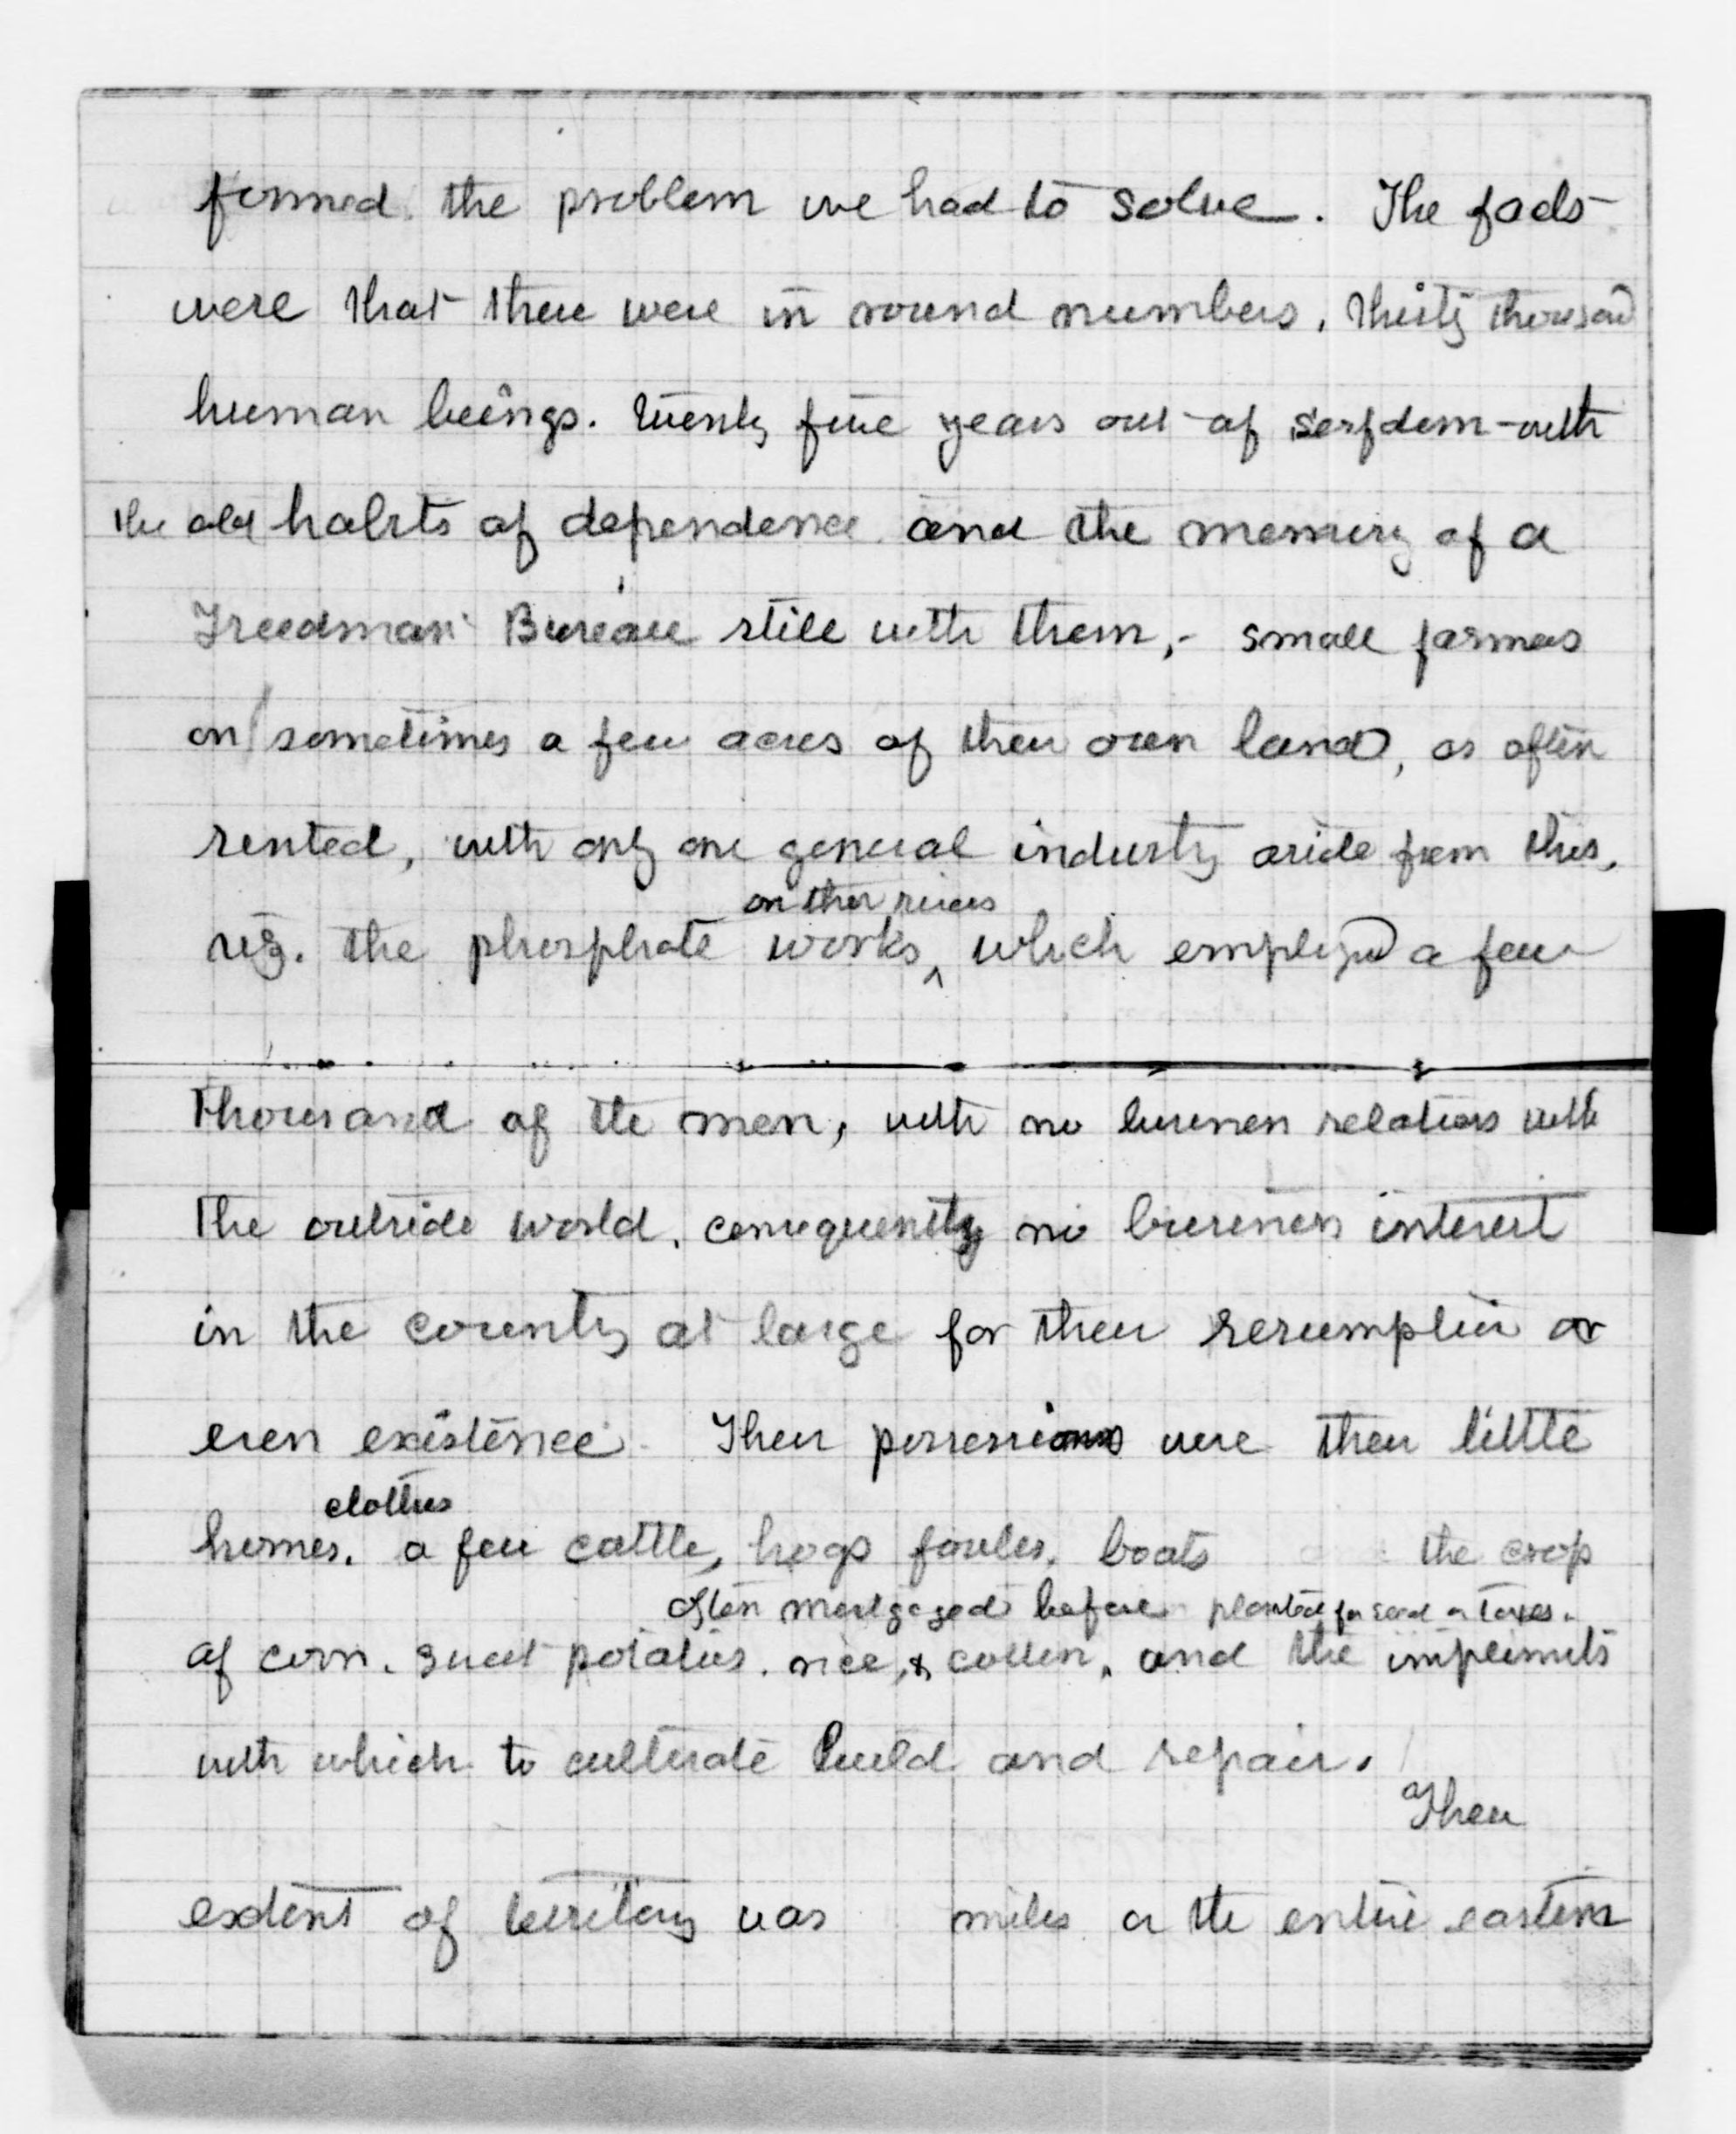 formed the problem we had to solve. The facts
were that there were in round numbers, thirty thousand
human beings. twenty five years out of serfdom - with
the old habits of dependence and the memory of a
Freedman's Bureau still with them, - small farmers
on sometimes a few acres of their own land, as often
rented, with only one general industry aside from this,
on their rivers
viz. the phosphate works, ^ which employed a few
thousand of the men, with no business relations with
the outside world, consequently no business interest
in the country at large for their resumption or
even existence. Their possessions were their little
clothes
homes, a few cattle, hogs fowles, boats the crop
often mortgaged before planted for seed or taxes.
of corn, sweet potatoes, rice, & cotton, and the implements
with which to cultivate build and repair.
Their
extent of territory was miles or the entire eastern